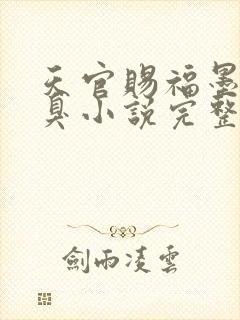 天官賜福墨
臭小說完整
劍雨凌雲